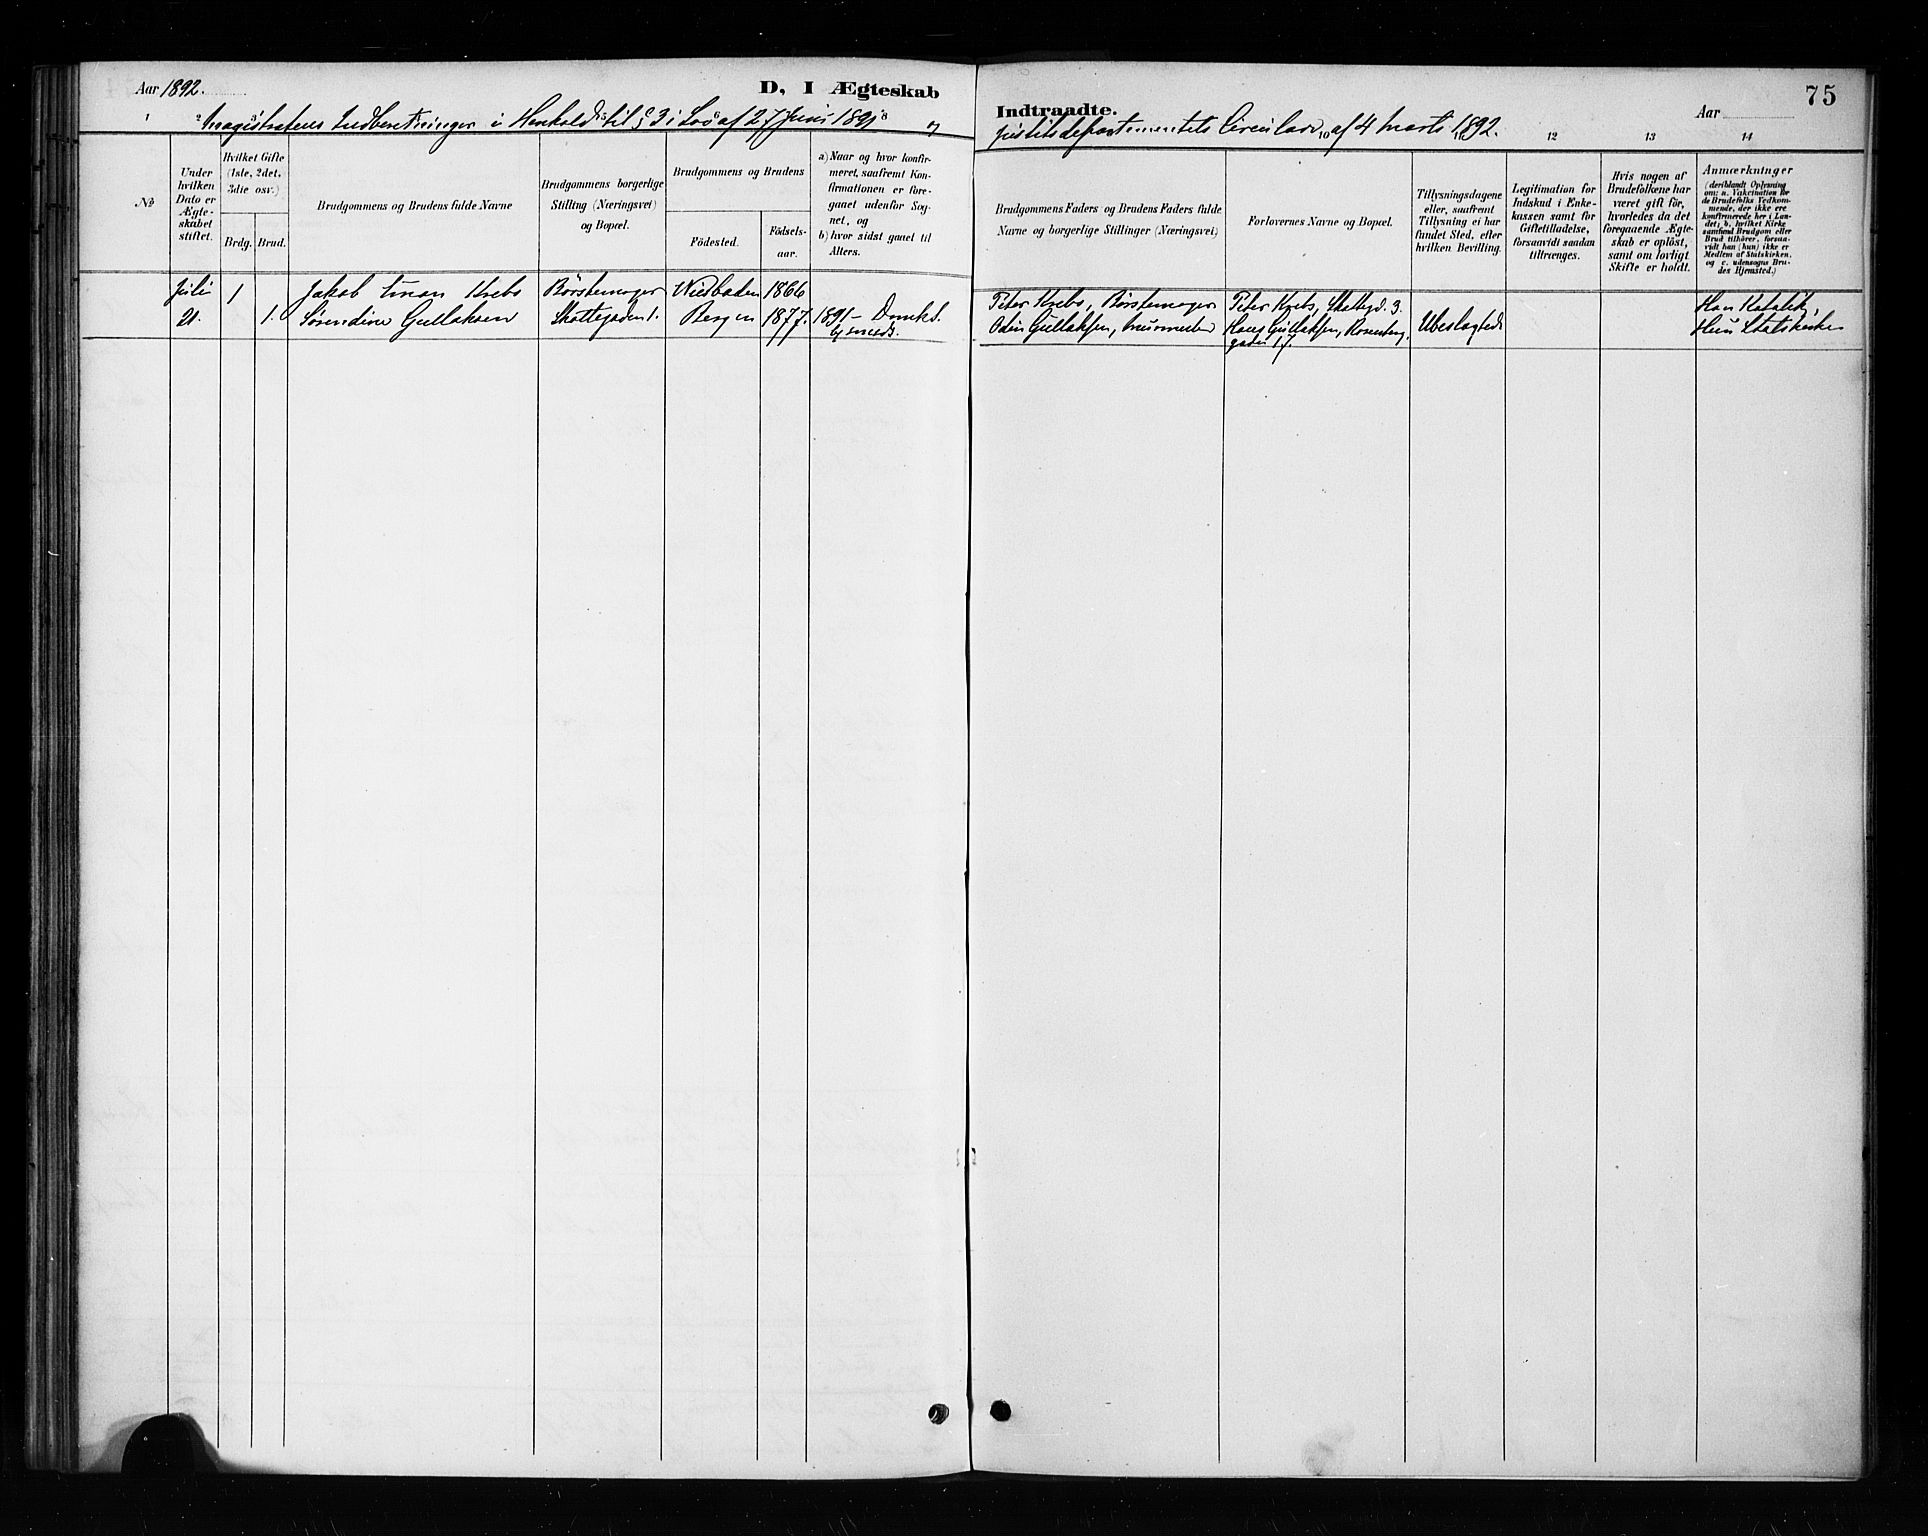 Aar 1892.
D, I Ægteskab
Indtraadte.
Aar
75
Magistratens Indberetninger i Henhold til § 3 i Lov af 27 Juni 1891 og
Justitsdepartementets Circulære af 4 Marts 1892.
1 2 3 5 8 10 11 12 13 14
No
Under hvilken Dato er Ægteskabet stiftet.
Hvilket Gifte (1ste, 2det, 3die osv.)
Brdg. Brud.
Brudgommens og Brudens fulde Navne
Brudgommens borgerlige Stilling (Næringsvei) og Bopæl.
Brudgommens og Brudens
Födested.
Födsels-aar.
a) Naar og hvor konfirmeret, saafremt Konfirmationen er foregaaet udenfor Sognet, og
b) hvor sidst gaaet til Alters.
Brudgommens Faders og Brudens Faders fulde Navne og borgerlige Stillinger (Næringsvei)
Forlovernes Navne og Bopæl.
Tillysningsdagene eller, saafremt Tillysning ei har fundet Sted, efter hvilken Bevilling.
Legitimation for Indskud i Enkekassen samt for Giftetilladelse, forsaavidt saadan tiltrænges.
Hvis nogen af Brudefolkene har været gift för, hvorledes da det foregaaende Ægteskab er oplöst, samt om lovligt Skifte er holdt.
Anmærkninger
(deriblandt Oplysning om: a. Vakcination for de Brudefolks Vedkommende, der ikke ere konfirmerede her i Landet; b, hvilket Kirkesamfund Brudgom eller Brud tilhörer, forsaavidt han (hun) ikke er Medlem af Statskirken, og c. udensogns Brudes Hjemsted.)
Juli 1 Jakob Krebs Börstemager Wiesbaden 1866
Peter Krebs, Börstemager Peter Krebs, Skottegd. 3. Han Katolik,
21. 1. Sørendine Gullaksen Skottegaden 1. Bergen 1877. 1891 - Domk.
Odin Gullaksen, Murmester Hans Gullaksen, Rosenberg- Ubeslægtede Hun Statskirken
gaden 17.